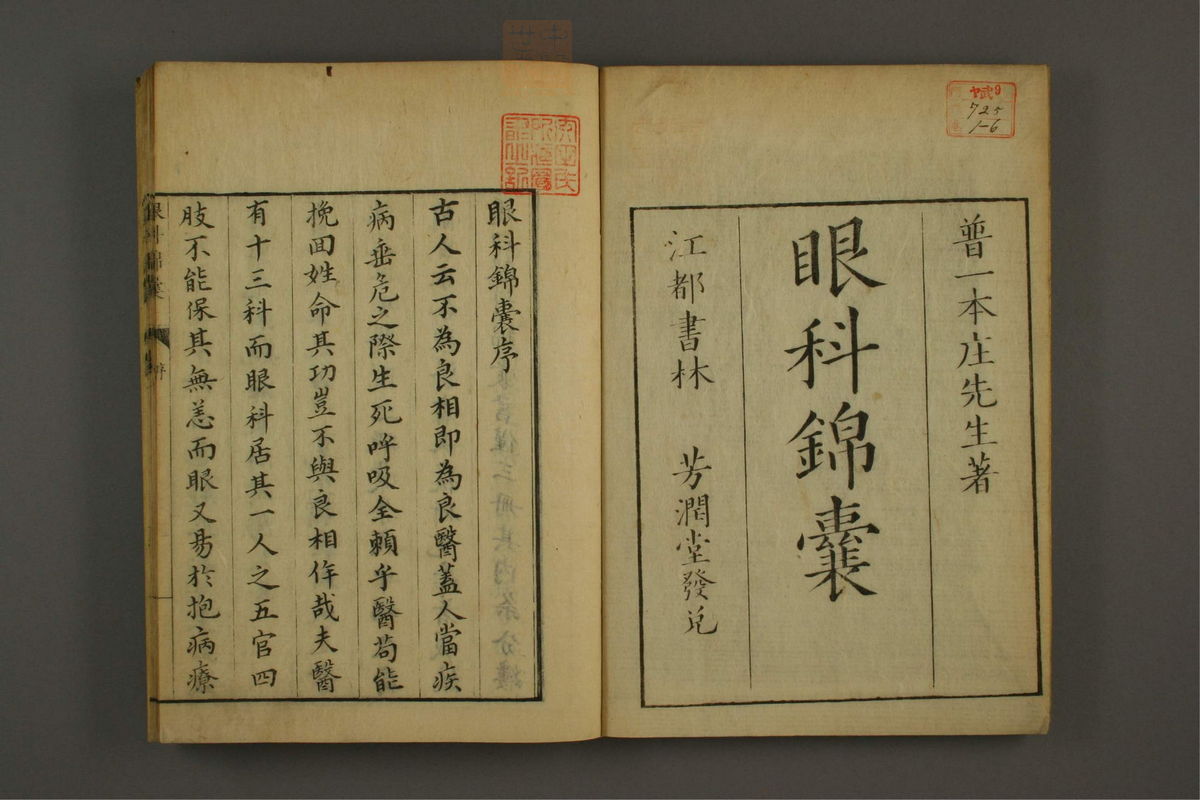 普一本庄先生著
眼科錦囊
江都書林 芳潤堂發兌
ヤ9
725
1-6
眼科錦囊序
古人云不為良相即為良醫蓋人當疾
病垂危之際生死呼吸全頼乎醫苟能
挽回姓命其功豈不與良相侔哉夫醫
有十三科而眼科居其一人之五官四
肢不能保其無恙而眼又易於抱病療
眼科錦囊
序